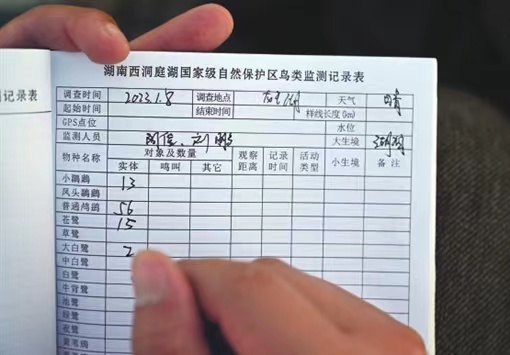 记录表
湖南西洞庭湖国家级自然保护区鸟类监测记录表
调查时间 2023.1.8 调查地点 天气 晴
起始时间 结束时间 样线长度(km)
GPS点位 水位
监测人员 大生境 湖泊
物种名称 对象及数量 观察距离 记录时间 活动类型 小生境 备注
实体 鸣叫 其它
小䴙䴘 13
凤头䴙䴘
普通鸬鹚 56
苍鹭 15
草鹭
大白鹭 2
中白鹭
白鹭
牛背鹭
池鹭
绿鹭
夜鹭
黄苇鳽